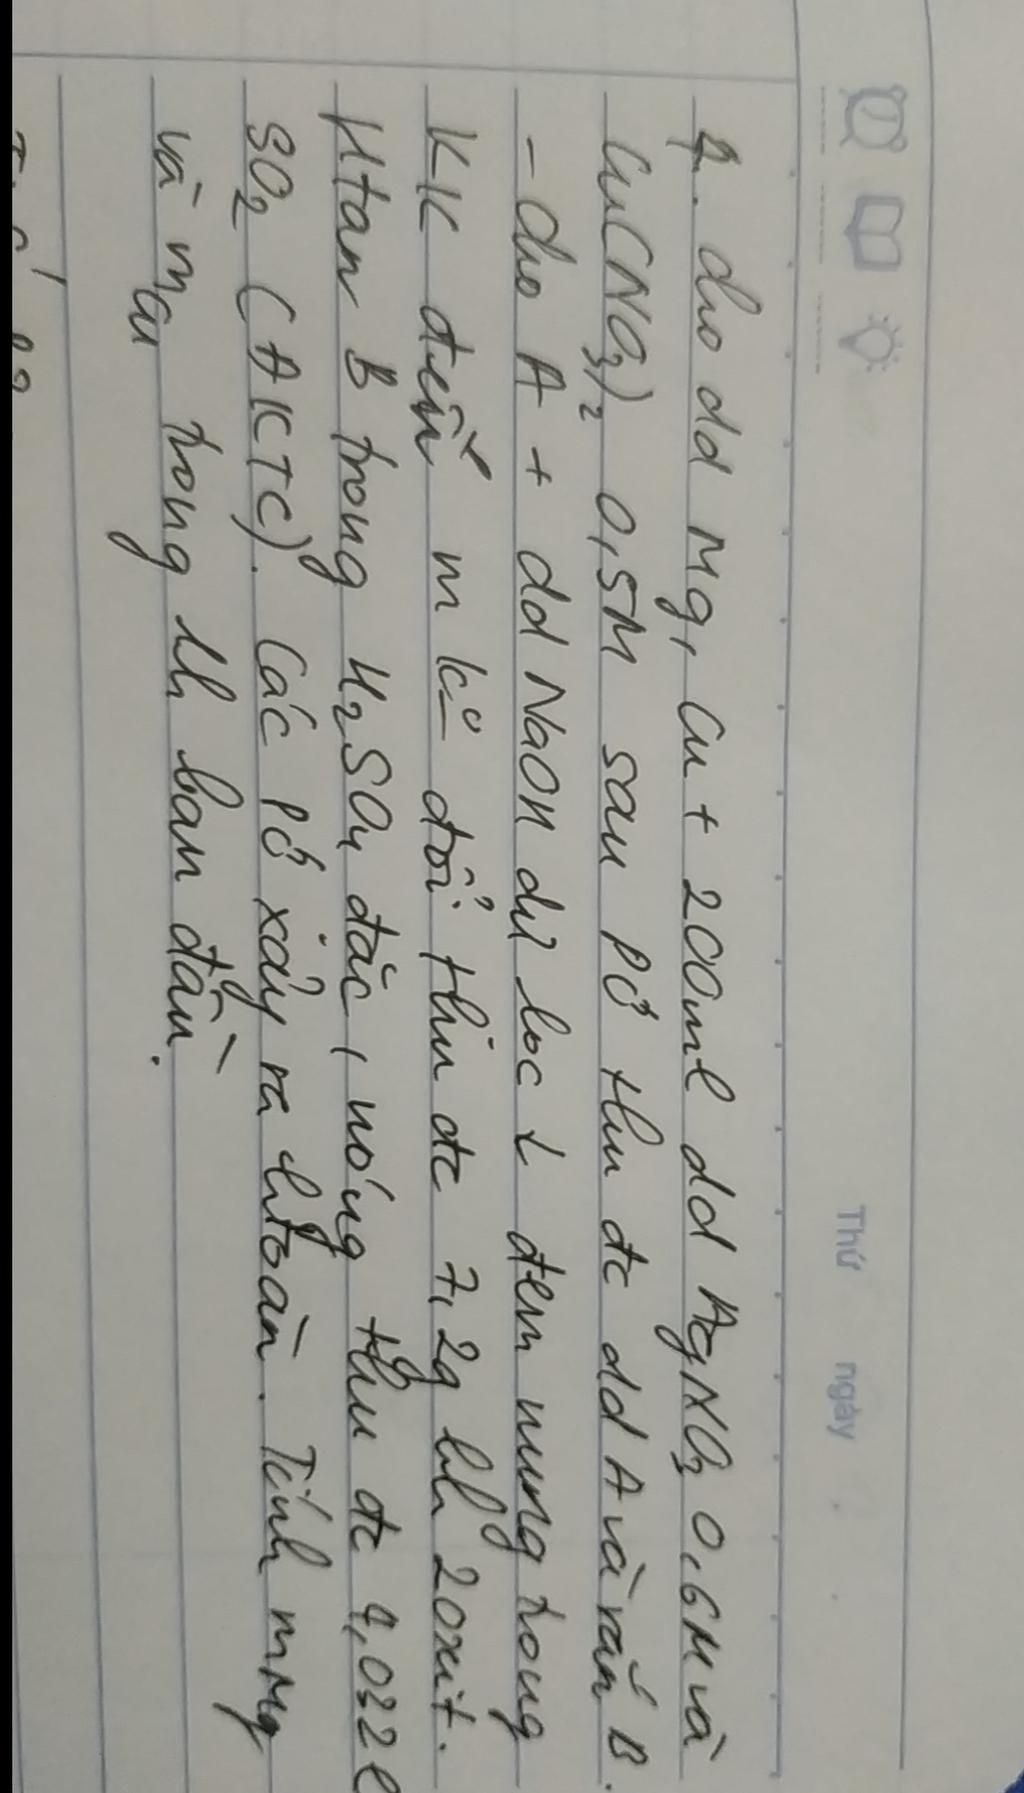 Thứ ngày
1. cho dd Mg, Cu + 200ml dd AgNO3 0,6M và
Cu(NO3)2 0,5M sau pứ thu đc dd A và rắn B.
- cho A + dd NaOH dư lọc ↓ đem nung trong
KK đến m kđ đổi thu đc 7,2g hh 2 oxit.
Htan B trong H2SO4 đặc, nóng thu đc 4,032l
SO2 (ĐKTC). Các pứ xảy ra htoàn. Tính mMg
và mCu trong hh ban đầu.